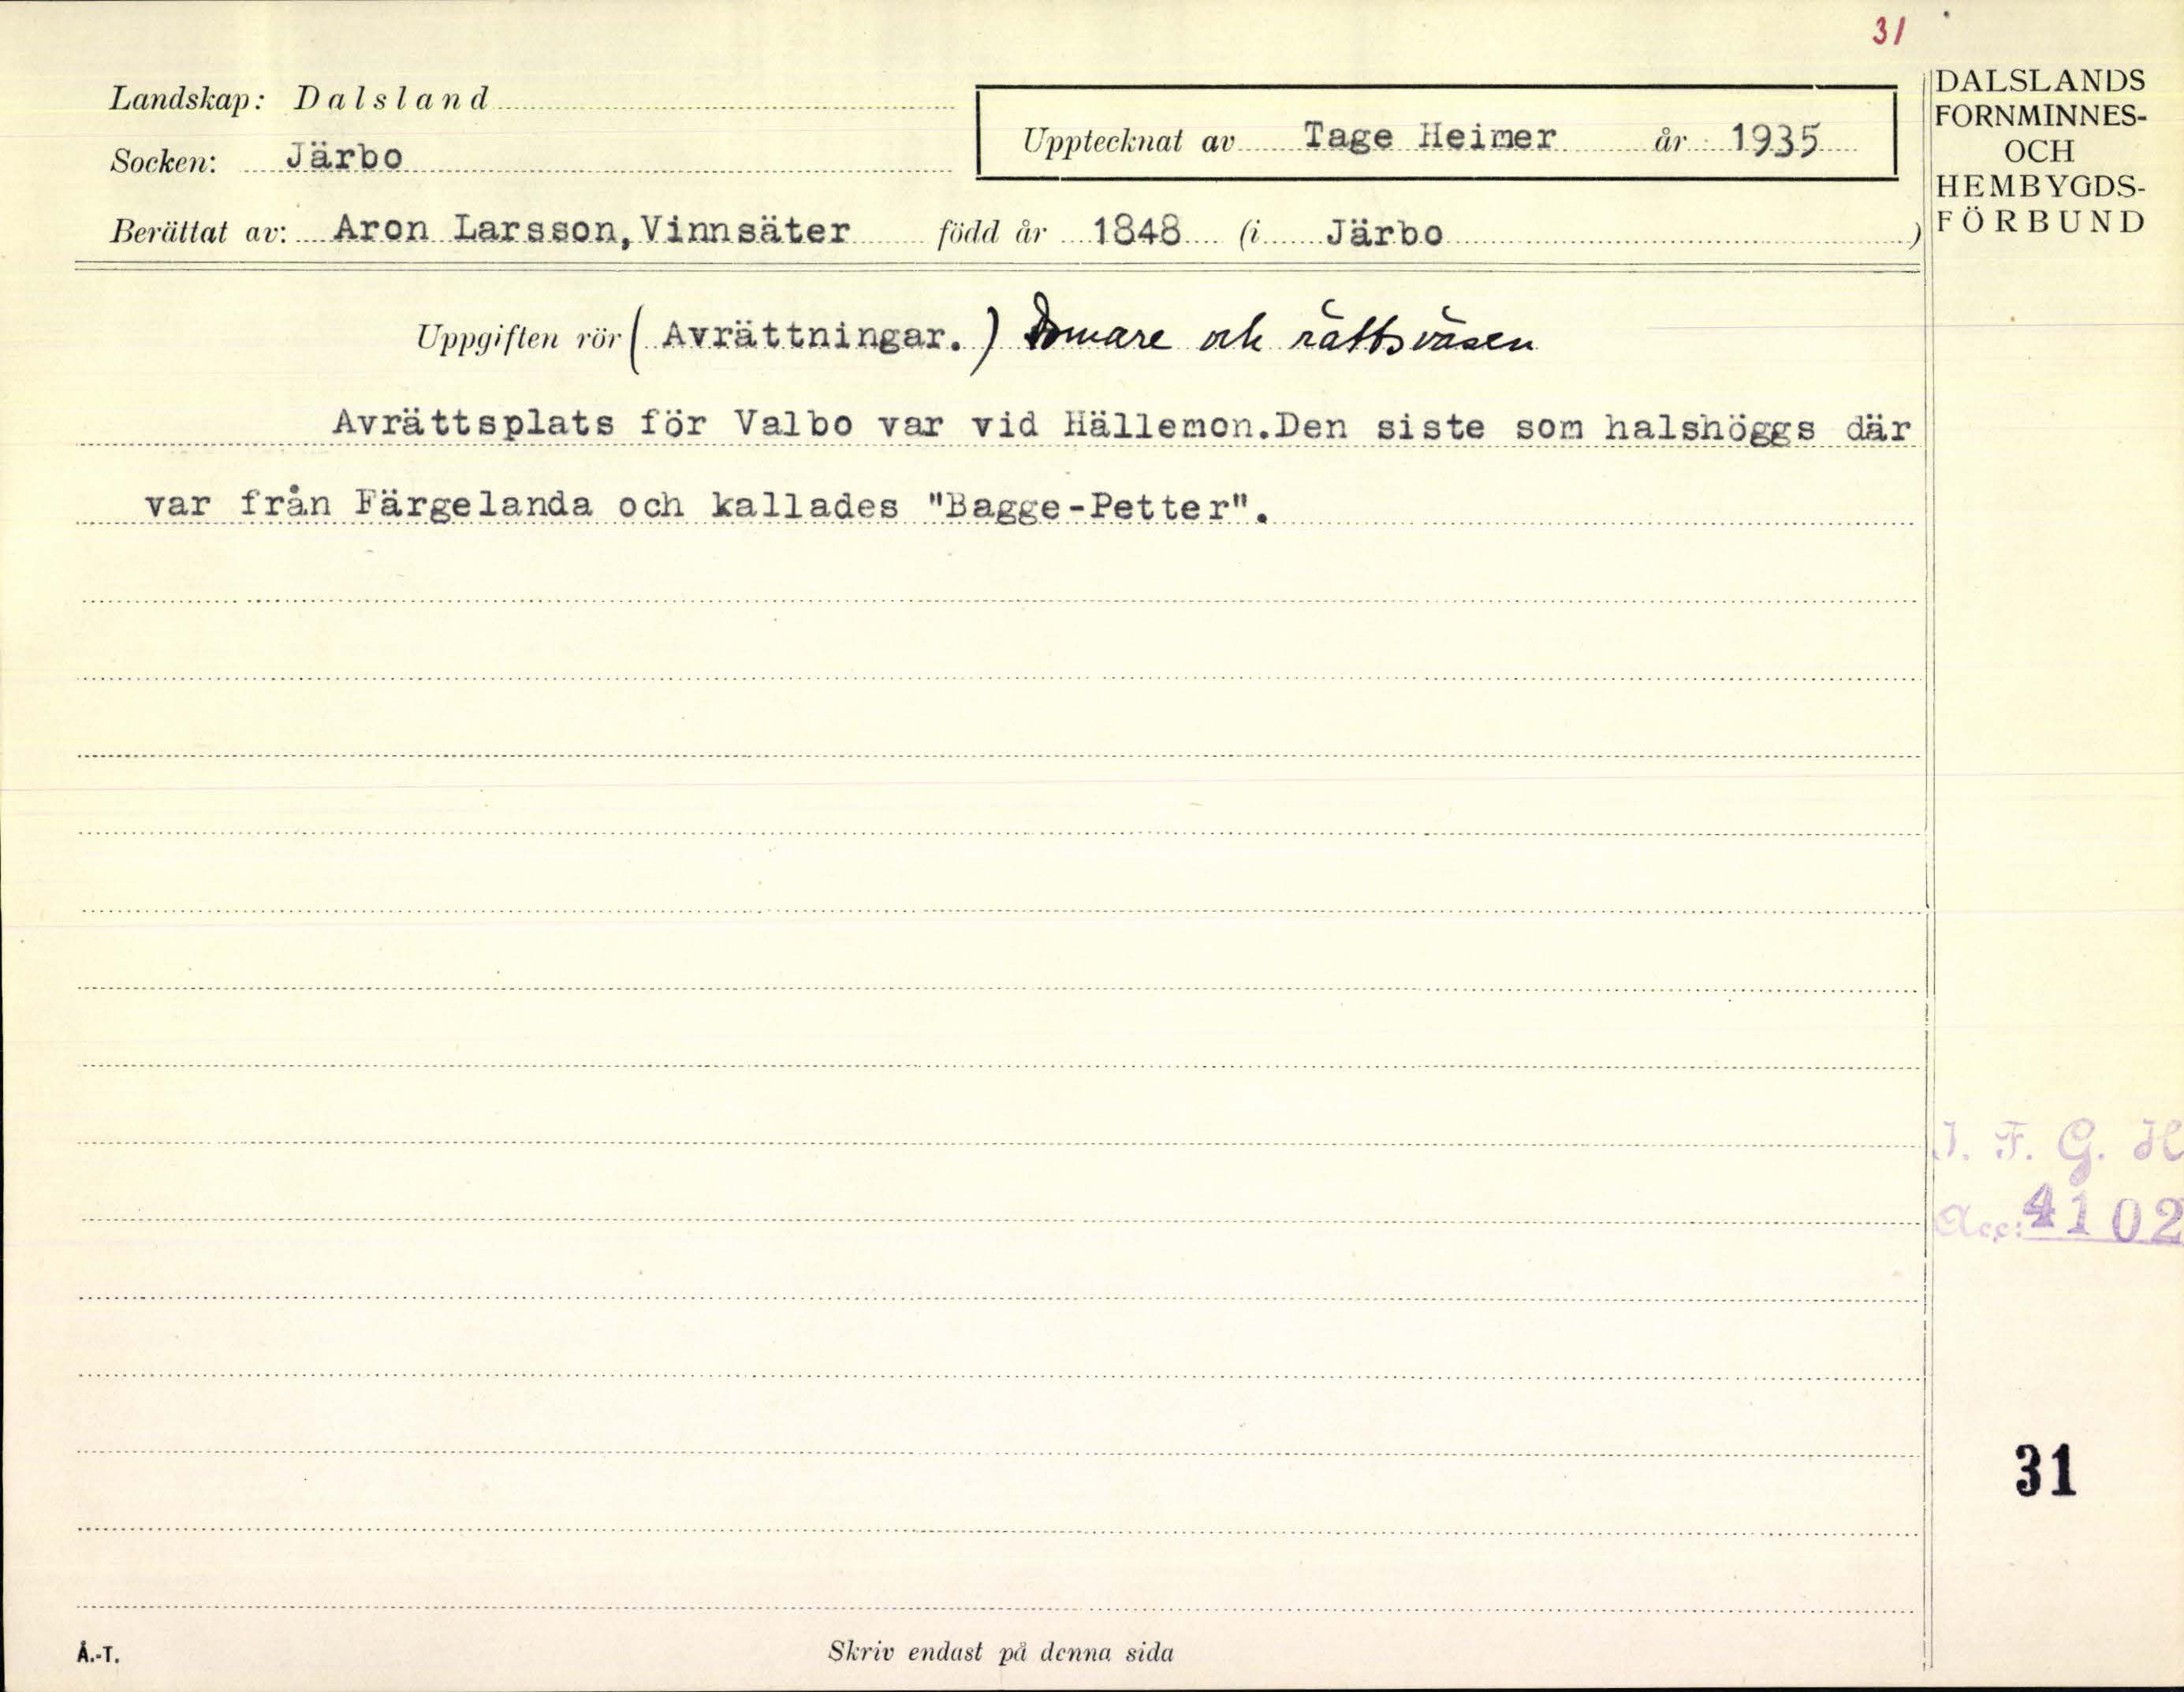 31
Landskap: Dalsland
Socken: Järbo
Upptecknat av Tage Heimer år 1935
Berättat av: Aron Larsson, Vinnsäter född år 1848 (i Järbo)
DALSLANDS
FORNMINNES-
OCH
HEMBYGDS-
FÖRBUND
Uppgiften rör (Avrättningar.) Domare och rättsväsen
Avrättsplats för Valbo var vid Hällemon.Den siste som halshöggs där
var från Färgelanda och kallades "Bagge-Petter".
I. F. G. H
Acc: 4102
31
Å.-T.
Skriv endast på denna sida